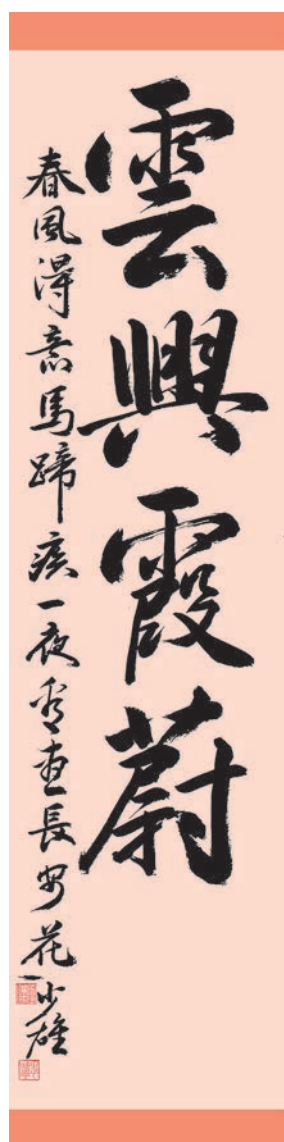 雲興霞蔚
春風得意馬蹄疾一夜看盡長安花 少雄